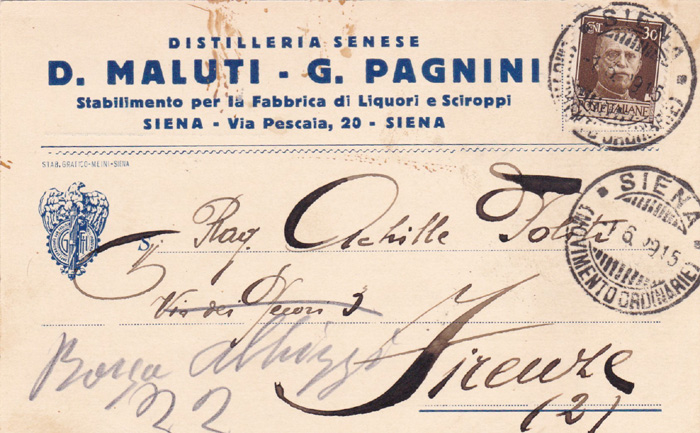 DISTILLERIA SENESE
D. MALUTI - G. PAGNINI
Stabilimento per la Fabbrica di Liquori e Sciroppi
SIENA - Via Pescaia, 20 - SIENA
STAB. GRAFICO-MEINI-SIENA
CENT. 30
POSTE ITALIANE
SIENA
SIENA
(MOVIMENTO ORDINARIE)
S.
Rag. Achille
Via dei 3
Borgo Albizzi
22
Firenze
(2)